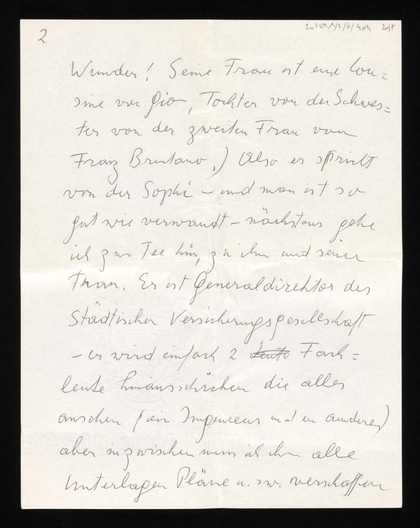 2
Wunder! Seine Frau ist eine Cou=
sine von Gio, Tochter von der Schwes=
ter von der zweiten Frau vom
Franz Brentano.) Also er spricht
von der Sophi – und man ist so
gut wie verwandt – nächstens gehe
ich zum Tee hin, zu ihm und seiner
Frau. Er ist Generaldirektor der
Städtischen Versicherungsgesellschaft
– er wird einfach 2 Fach=
leute hinausschicken die alles
ansehen (ein Ingenieur und ein anderer)
aber inzwischen muss ich ihm alle
Unterlagen Pläne u.s.w. verschaffen